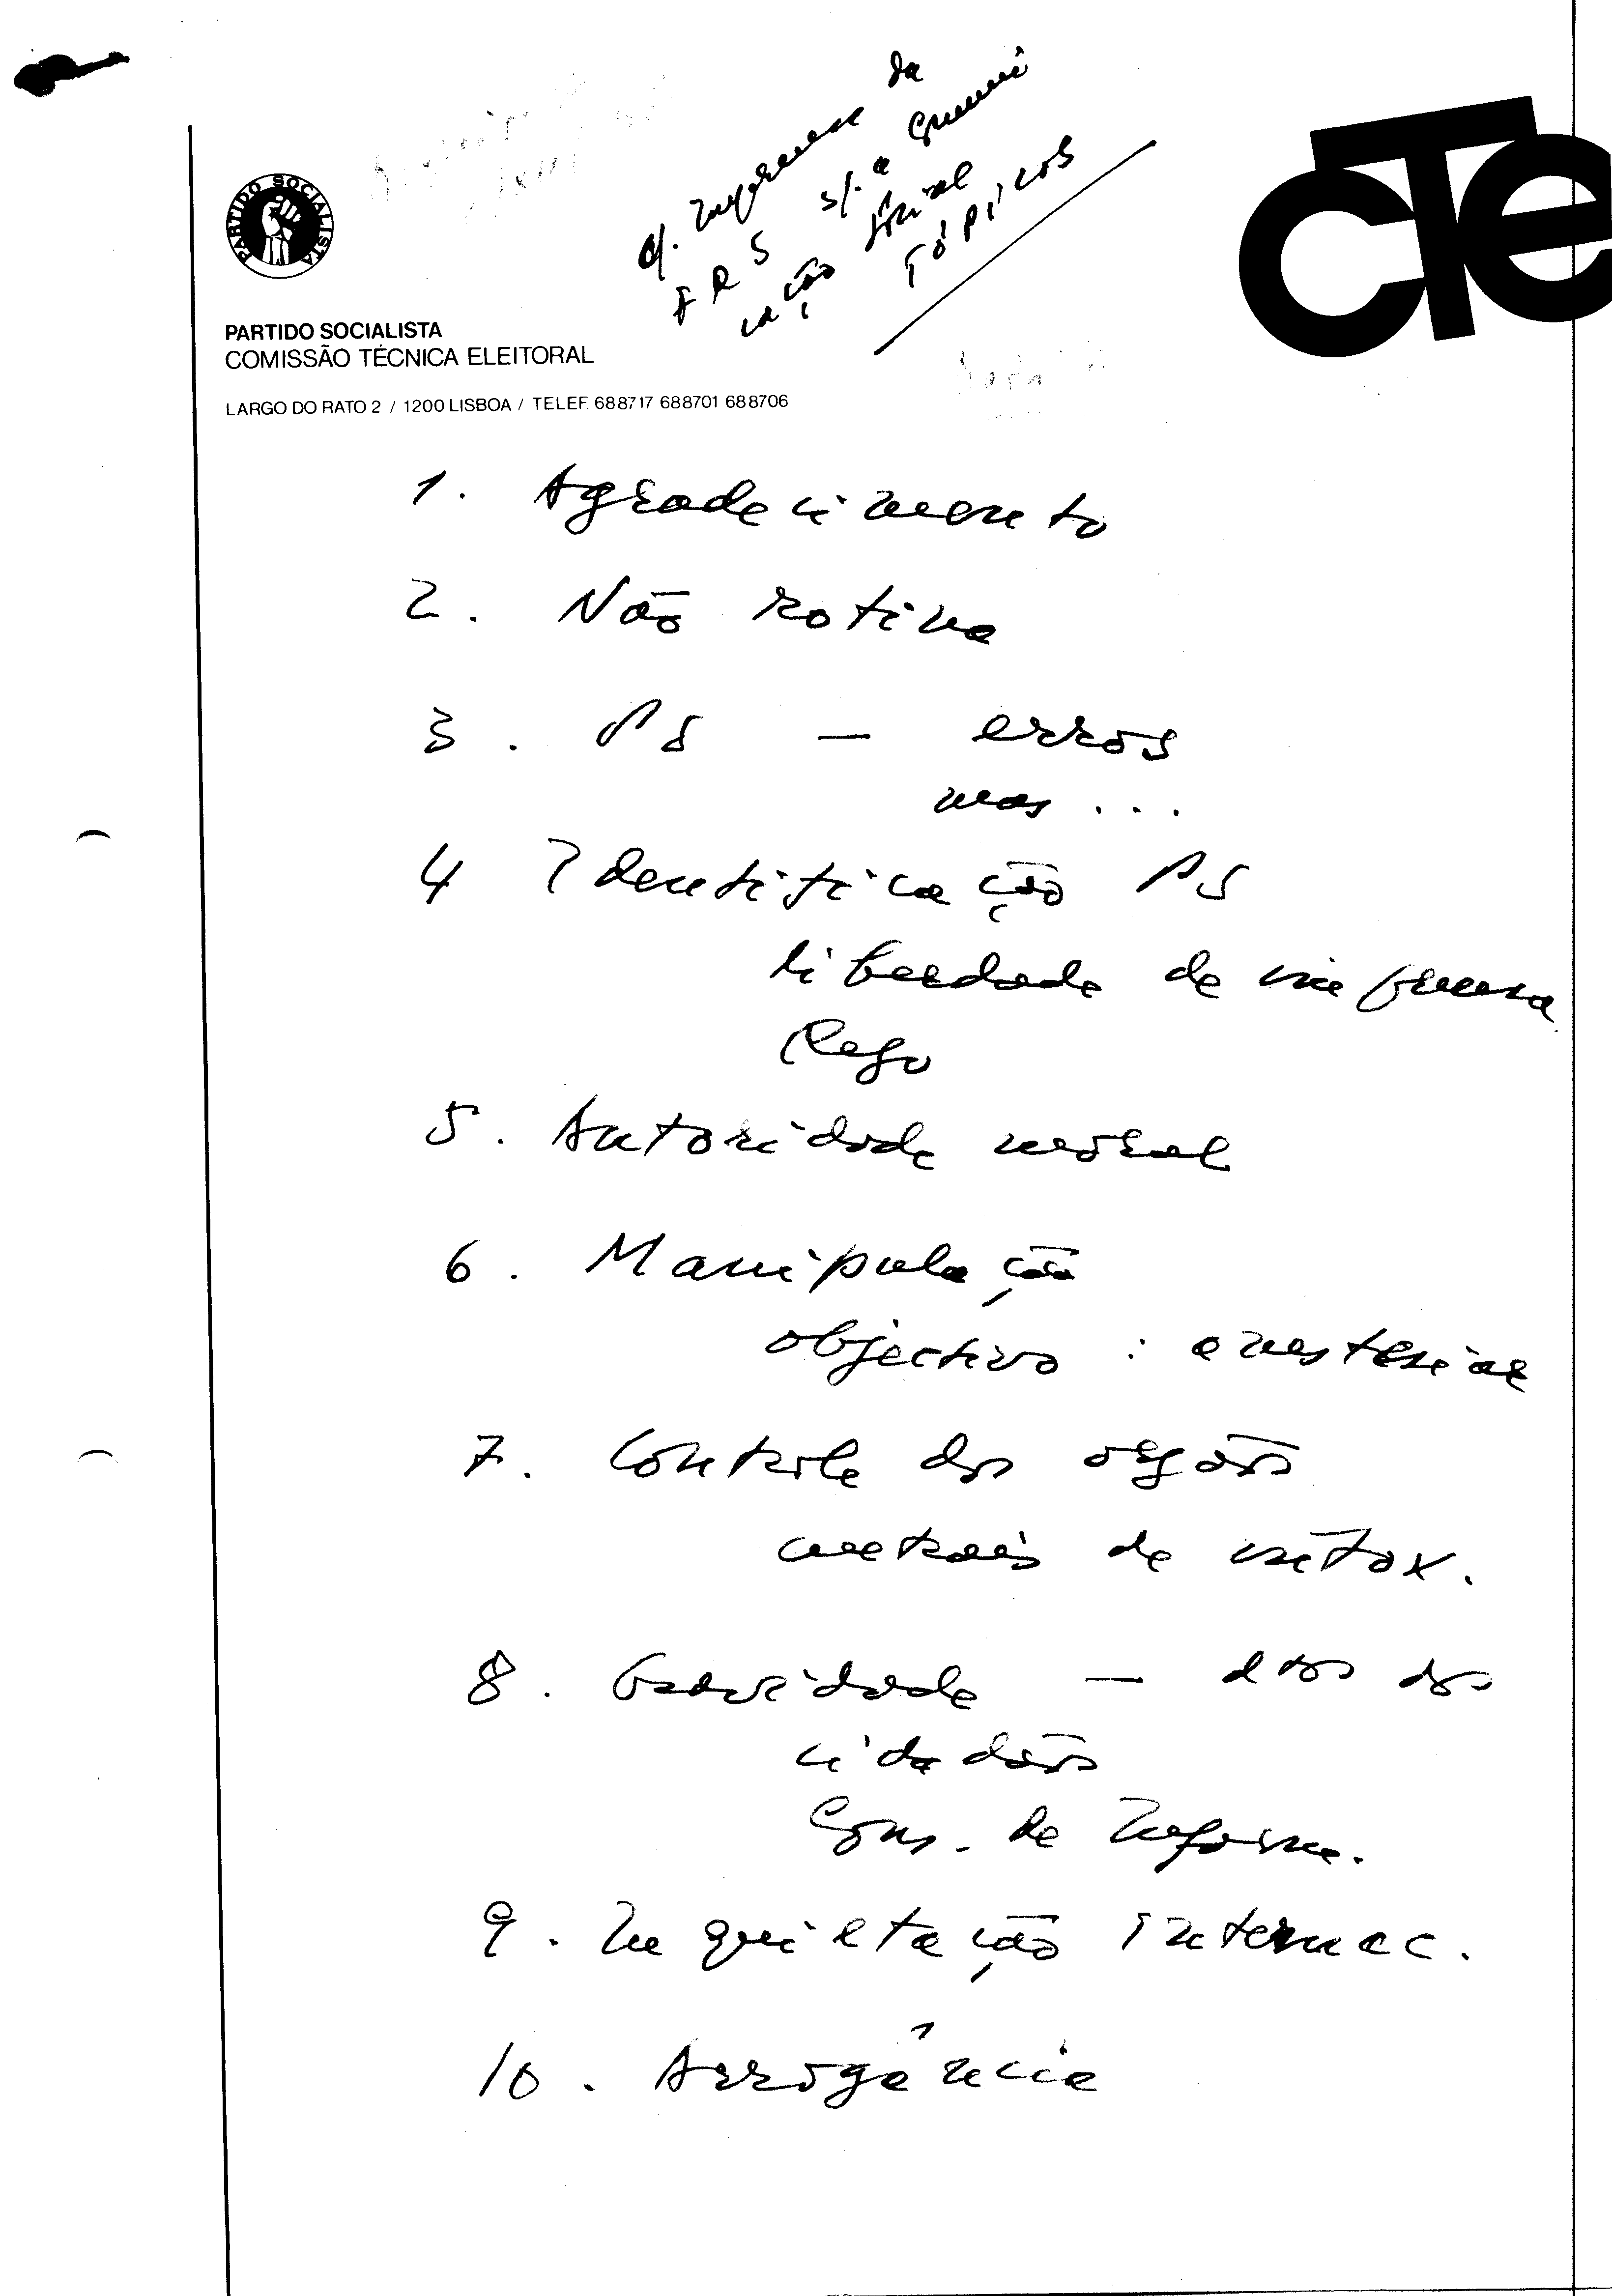 da
cf. Imprensa
FRS s/. a Comuni
cação social
TÓPICOS
CTE
PARTIDO SOCIALISTA
PARTIDO SOCIALISTA
COMISSÃO TÉCNICA ELEITORAL
LARGO DO RATO 2 / 1200 LISBOA / TELEF. 688717 688701 688706
1. Agradecimento
2. Não rotina
3. PS — erros
mas ...
4 Identificação PS
liberdade de imprensa
Rego
5. Autoridade moral
6. Manipulação
objectivo : anestesiar
7. Controle dos orgãos
centrais de intox.
8. Gravidade — dtos dos
cidadãos
Cons. de Inform.
9. Inquietação internac.
10. Arrogância